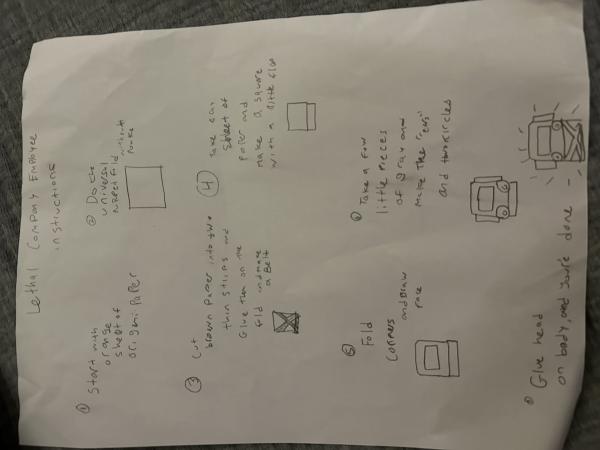 Lethal Company Employee
instructions
① Start with
orange
sheet of
origami paper
② Do the
universal
puppet fold without
③ Cut
brown paper into two
thin strips and
Glue them on the
fold and make
a Belt
④ Take
sheet of
paper and
make a square
with a little flap
⑤ Fold
corners and Draw
face
⑥ Take a few
little pieces
of gray and
make the "ears"
and two circles
⑦ Glue head
on body, and you're done